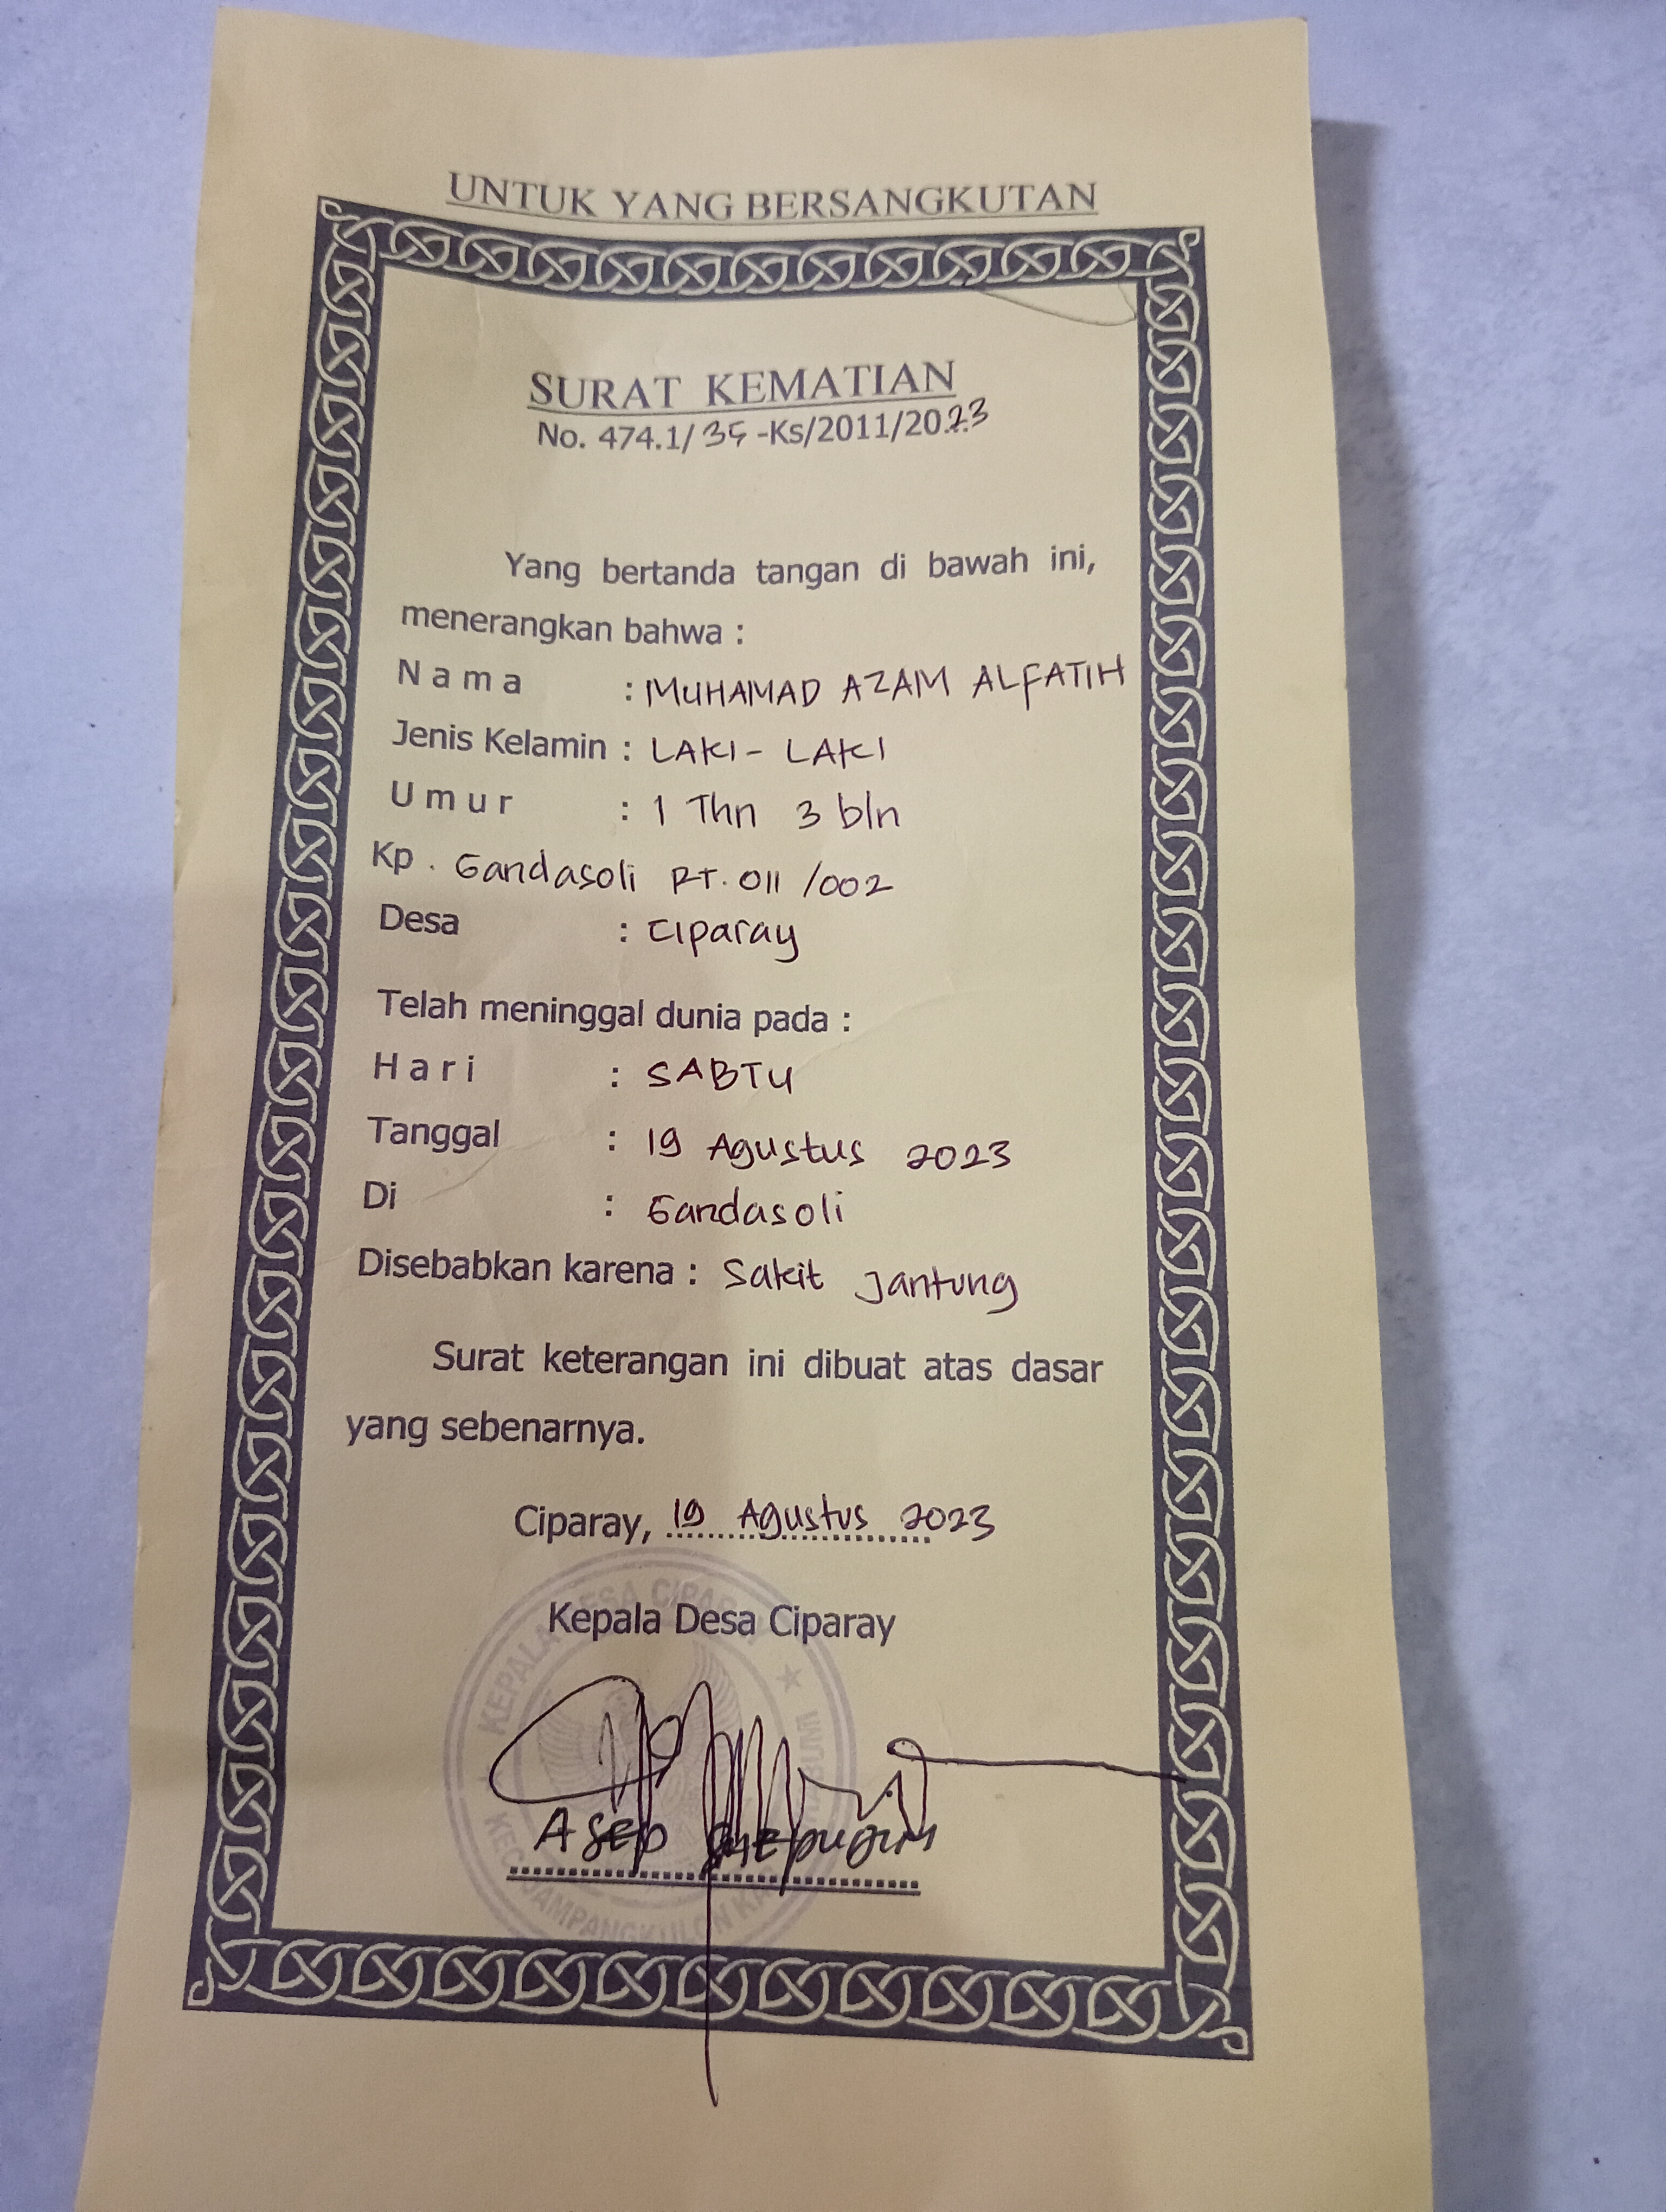 UNTUK YANG BERSANGKUTAN
SURAT KEMATIAN
No. 474.1/35-Ks/2011/2023
Yang bertanda tangan di bawah ini,
menerangkan bahwa :
Nama : MUHAMAD AZAM ALFATIH
Jenis Kelamin : LAKI-LAKI
Umur : 1 Thn 3 bln
Kp. Gandasoli RT. 011/002
Desa : Ciparay
Telah meninggal dunia pada :
Hari : SABTU
Tanggal : 19 Agustus 2023
Di : Gandasoli
Disebabkan karena : Sakit Jantung
Surat keterangan ini dibuat atas dasar
yang sebenarnya.
Ciparay, 19 Agustus 2023
Kepala Desa Ciparay
KEPALA DESA CIPARAY
KEC. JAMPANGKULON
ASEP